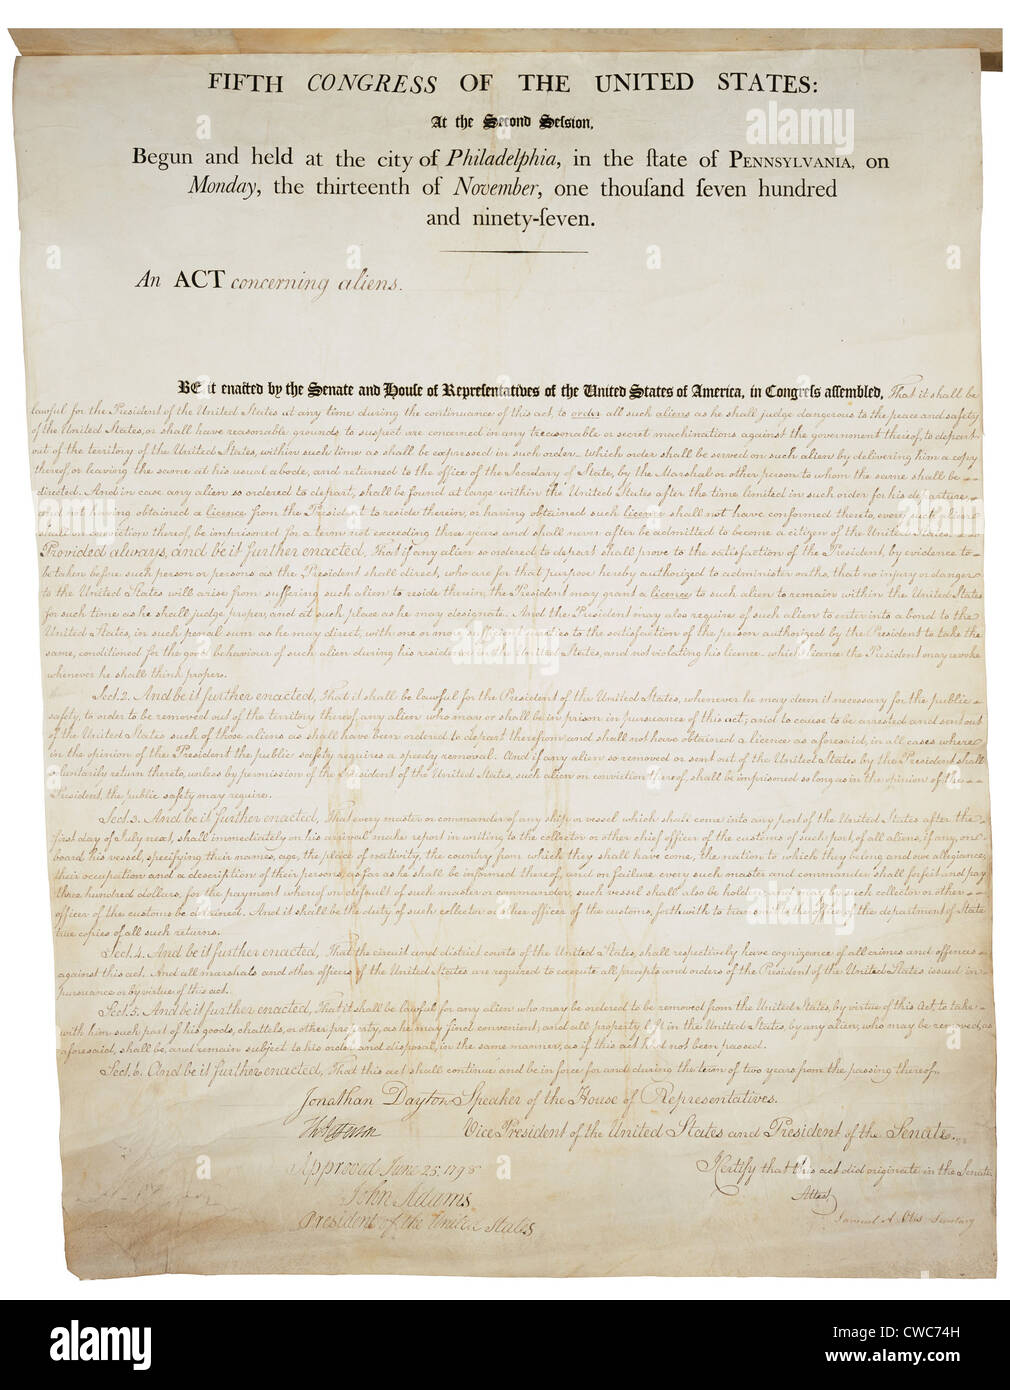 FIFTH CONGRESS OF THE UNITED STATES:
At the Second Seſsion,
Begun and held at the city of Philadelphia, in the ſtate of PENNSYLVANIA, on
Monday, the thirteenth of November, one thouſand ſeven hundred
and ninety-ſeven.
An ACT concerning aliens.
BE it enacted by the Senate and Houſe of Repreſentatives of the United States of America, in Congreſs aſſembled, That it shall be
lawful for the President of the United States at any time during the continuance of this act, to order all such aliens as he shall judge dangerous to the peace and safety
of the United States, or shall have reasonable grounds to suspect are concerned in any treasonable or secret machinations against the government thereof, to depart
out of the territory of the United States, within such time as shall be expressed in such order. which order shall be served on such alien by delivering him a copy
thereof or leaving the same at his usual abode, and returned to the office of the Secretary of State, by the Marshal or other person to whom the same shall be
directed. And in case any alien so ordered to depart, shall be found at large within the United States after the time limited in such order for his departure
and not having obtained a licence from the President to reside therein, or having obtained such licence shall not have conformed thereto, every such alien
shall on conviction thereof, be imprisoned for a term not exceeding three years and shall never after be admitted to become a citizen of the United States.
Provided always, and be it further enacted, That if any alien so ordered to depart shall prove to the satisfaction of the President, by evidence to
be taken before such person or persons as the President shall direct, who are for that purpose hereby authorized to administer oaths, that no injury or danger
to the United States will arise from suffering such alien to reside therein, the President may grant a licence to such alien to remain within the United States
for such time as he shall judge proper, and at such place as he may designate. And the President may also require of such alien to enter into a bond to the
United States, in such penal sum as he may direct, with one or more sufficient sureties to the satisfaction of the person authorized by the President to take the
same, conditioned for the good behaviour of such alien during his residence in the United States, and not violating his licence. which licence the President may revoke
whenever he shall think proper.
Sect. 2. And be it further enacted, That it shall be lawful for the President of the United States, whenever he may deem it necessary for the public
safety, to order to be removed out of the territory thereof, any alien who may or shall be in prison in pursuance of this act; and to cause to be arrested and sent out
of the United States such of those aliens as shall have been ordered to depart therefrom and shall not have obtained a licence as aforesaid, in all cases where
in the opinion of the President the public safety requires a speedy removal. And if any alien so removed or sent out of the United States by the President shall
voluntarily return thereto, unless by permission of the President of the United States, such alien on conviction thereof, shall be imprisoned so long as in the opinion of the
President, the public safety may require.
Sect. 3. And be it further enacted, That every master or commander of any ship or vessel which shall come into any port of the United States after the
first day of July next, shall immediately on his arrival make report in writing to the collector or other chief officer of the customs of such port, of all aliens, if any, on
board his vessel, specifying their names, age, the place of nativity, the country from which they shall have come, the nation to which they belong and owe allegiance,
their occupation and a description of their persons, as far as he shall be informed thereof, and on failure every such master and commander shall forfeit and pay
three hundred dollars, for the payment whereof on default of such master or commander, such vessel shall also be holden, and may by such collector or other
officer of the customs be detained. And it shall be the duty of such collector or other officer of the customs, forthwith to transmit to the office of the department of State
true copies of all such returns.
Sect. 4. And be it further enacted, That the circuit and district courts of the United States, shall respectively have cognizance of all crimes and offences
against this act. And all marshals and other officers of the United States are required to execute all precepts and orders of the President of the United States issued in
pursuance or by virtue of this act.
Sect. 5. And be it further enacted, That it shall be lawful for any alien who may be ordered to be removed from the United States, by virtue of this Act, to take
with him such part of his goods, chattels, or other property, as he may find convenient; and all property left in the United States, by any alien, who may be removed, as
aforesaid, shall be, and remain subject to his order and disposal, in the same manner, as if this act had not been passed.
Sect. 6. And be it further enacted, That this act shall continue and be in force for and during the term of two years from the passing thereof.
Jonathan Dayton Speaker of the House of Representatives.
Th Jefferson Vice President of the United States and President of the Senate.
Approved June 25. 1798
I Certify that this act did originate in the Senate
John Adams
Attest,
President of the United States
Samuel A. Otis Secretary
alamy
Image ID: CWC74H
www.alamy.com